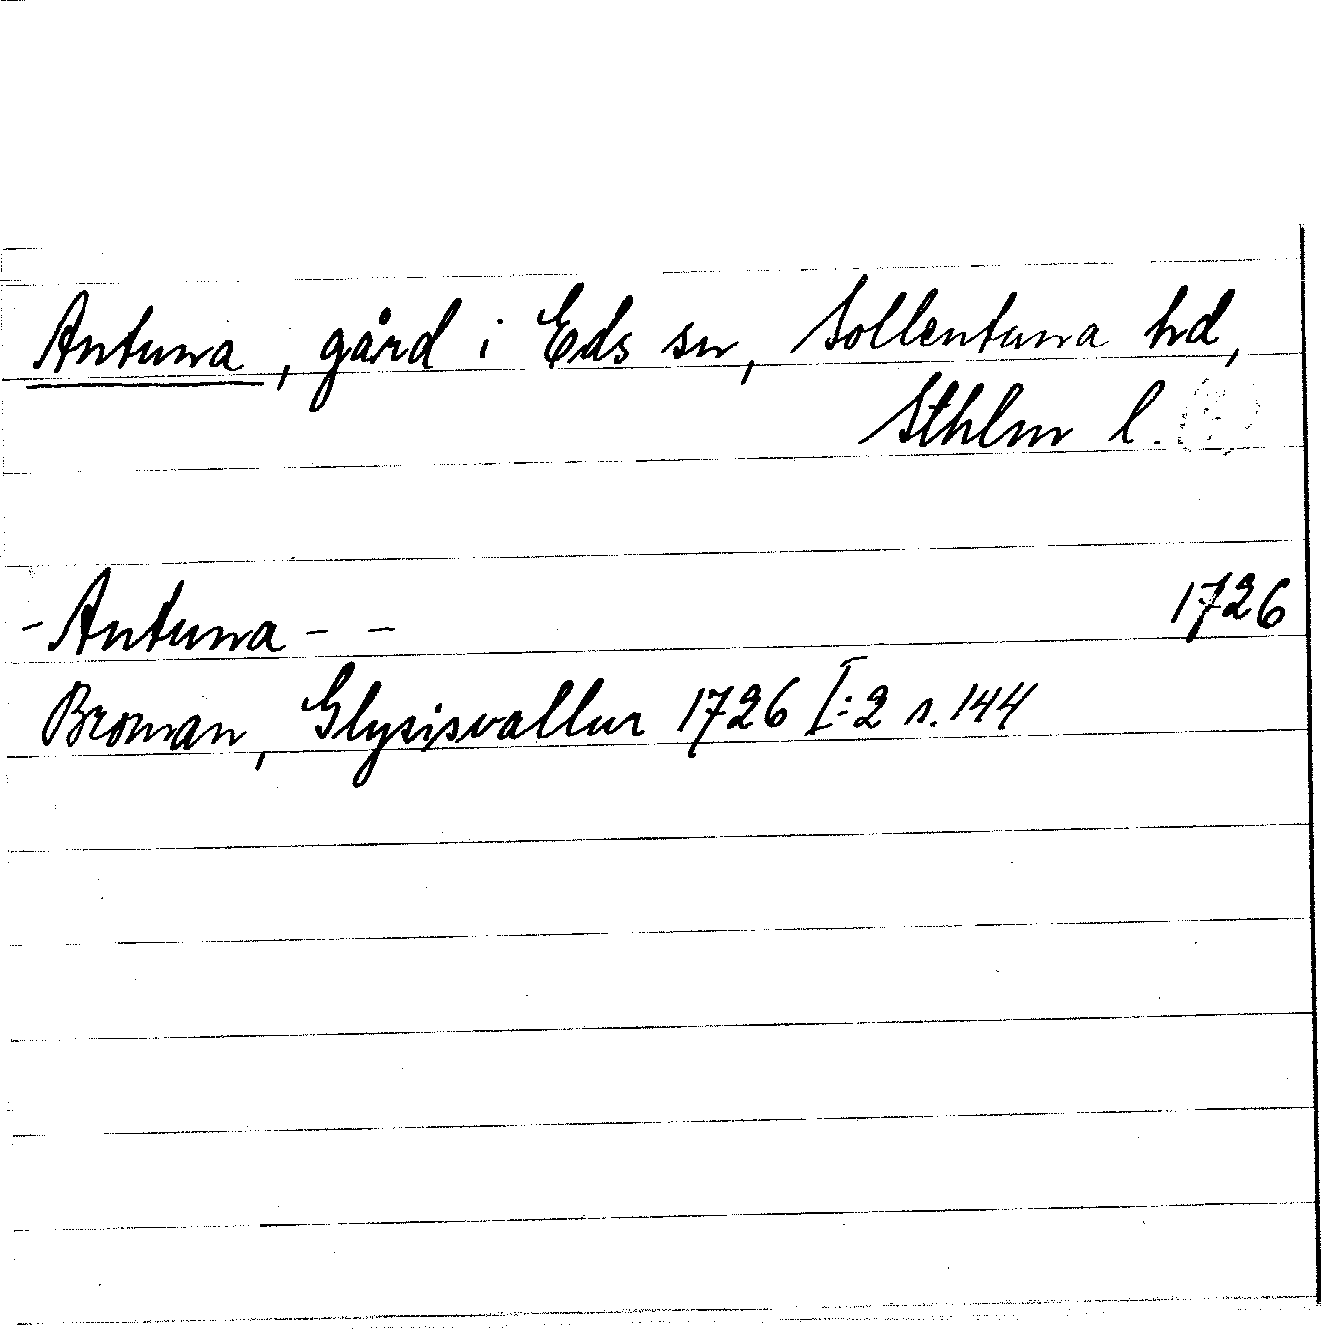 Antuna, gård i Eds sn, Sollentuna hd,
Sthlm l.
- Antuna - - 1726
Broman, Glysisvallur 1726 I:2 s. 144